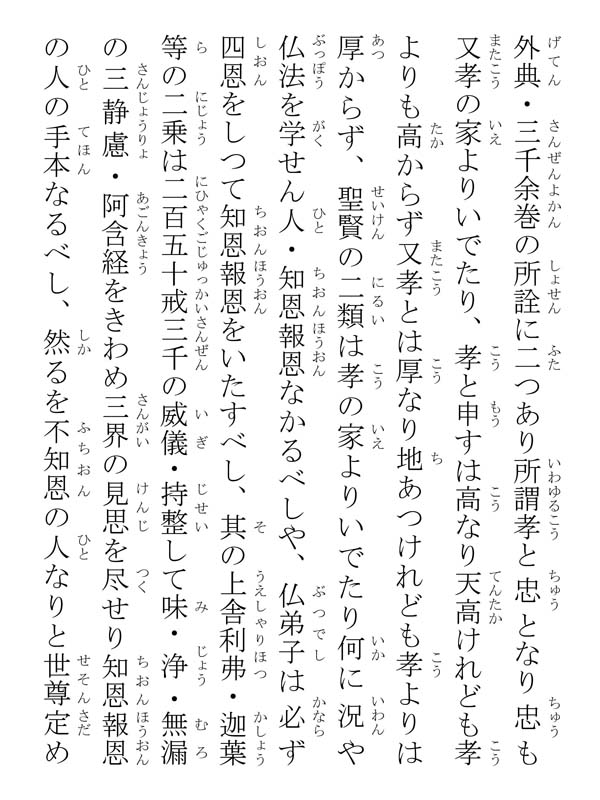 外典・三千余巻の所詮に二つあり所謂孝と忠となり忠も
又孝の家よりいでたり、孝と申すは高なり天高けれども孝
よりも高からず又孝とは厚なり地あつけれども孝よりは
厚からず、聖賢の二類は孝の家よりいでたり何に況や
仏法を学せん人・知恩報恩なかるべしや、仏弟子は必ず
四恩をしつて知恩報恩をいたすべし、其の上舎利弗・迦葉
等の二乗は二百五十戒三千の威儀・持整して味・浄・無漏
の三静慮・阿含経をきわめ三界の見思を尽せり知恩報恩
の人の手本なるべし、然るを不知恩の人なりと世尊定め